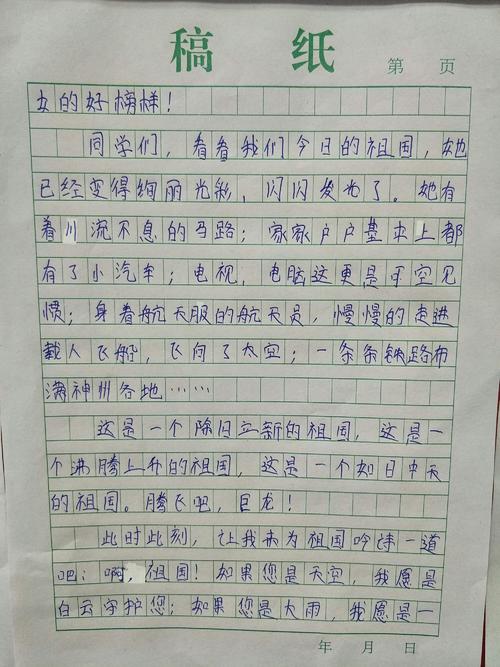 稿 纸
第 页
女的好榜样！
同学们，看看我们今日的祖国，她
已经变得绚丽光彩，闪闪发光了。她有
着川流不息的马路；家家户户基本上都
有了小汽车；电视，电脑这更是平空见
惯；身着航天服的航天员，慢慢的走进
载人飞船，飞向了太空；一条条铁路布
满神州各地……
这是一个除旧立新的祖国，这是一
个沸腾上升的祖国，这是一个如日中天
的祖国。腾飞吧，巨龙！
此时此刻，让我来为祖国吟诗一道
吧：啊，祖国！如果您是天空，我愿是
白云守护您；如果您是大雨，我愿是一
年 月 日